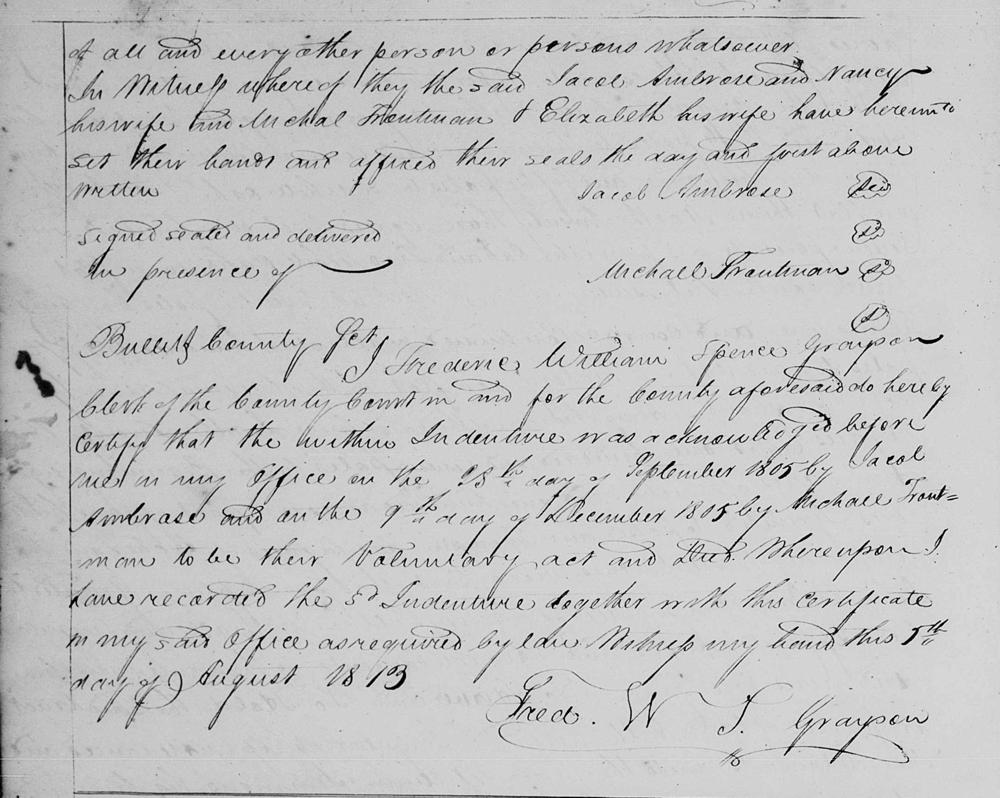 of all and every other person or persons whatsoever.
In Witness whereof they the said Jacob Ambrose and Nancy
his wife and Michal Troutman & Elizabeth his wife have hereunto
set their hands and affixed their seals the day and first above
written Jacob Ambrose
signed sealed and delivered
in presence of Michael Troutman
Bullitt County Sct
I Frederic William Spence Grayson
Clerk of the County Court in and for the County aforesaid do hereby
Certify that the within Indenture was acknowledged before
me in my Office on the day of September 1805 by Jacob
Ambrose and on the 9th day of December 1805 by Michael Trout=
man to be their Voluntary act and Deed. Whereupon I
have recorded the sd Indenture together with this Certificate
in my said Office as required by law Witness my hand this 5th
day of August 1813
Fred. W S. Grayson